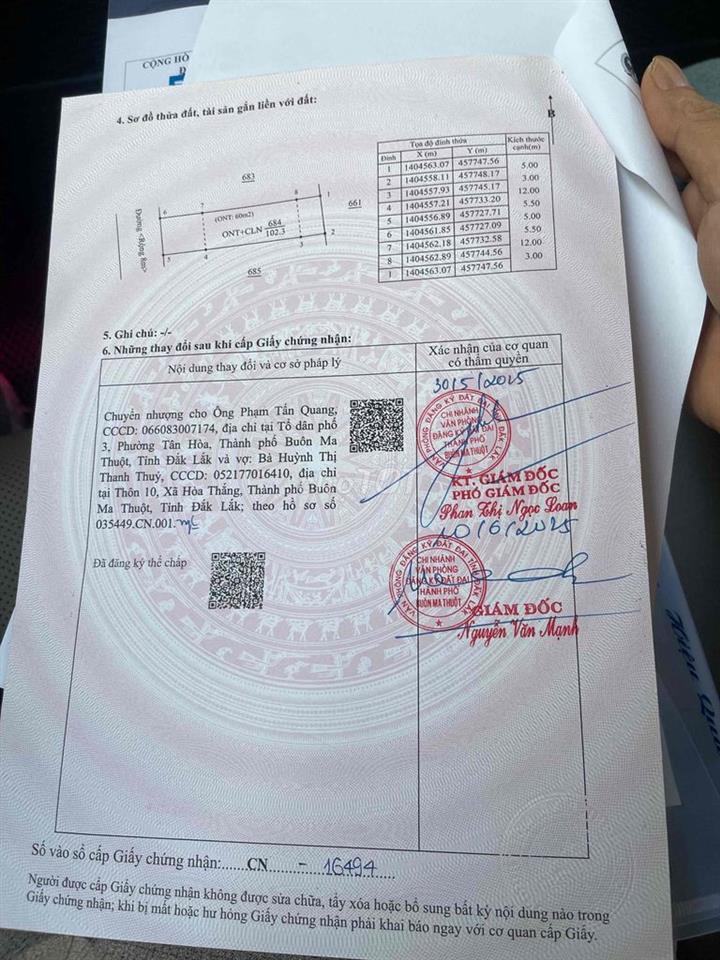 CỘNG HÒ
4. Sơ đồ thửa đất, tài sản gắn liền với đất:
B
683
661
685
6
7
8
1
5
4
3
2
Đường <Rộng 8m>
(ONT: 60m2)
ONT+CLN 684
102.3
Đỉnh Tọa độ đỉnh thửa Kích thước cạnh(m)
X (m) Y (m)
1 1404563.07 457747.56
5.00
2 1404558.11 457748.17
3.00
3 1404557.93 457745.17
12.00
4 1404557.21 457733.20
5.50
5 1404556.89 457727.71
5.00
6 1404561.85 457727.09
5.50
7 1404562.18 457732.58
12.00
8 1404562.89 457744.56
3.00
1 1404563.07 457747.56
5. Ghi chú: -/-
6. Những thay đổi sau khi cấp Giấy chứng nhận:
Nội dung thay đổi và cơ sở pháp lý
Xác nhận của cơ quan
có thẩm quyền
Chuyển nhượng cho Ông Phạm Tấn Quang,
CCCD: 066083007174, địa chỉ tại Tổ dân phố
3, Phường Tân Hòa, Thành phố Buôn Ma
Thuột, Tỉnh Đắk Lắk và vợ: Bà Huỳnh Thị
Thanh Thuỷ, CCCD: 052177016410, địa chỉ
tại Thôn 10, Xã Hòa Thắng, Thành phố Buôn
Ma Thuột, Tỉnh Đắk Lắk; theo hồ sơ số
035449.CN.001.
30/5/2025
VĂN PHÒNG ĐĂNG KÝ ĐẤT ĐAI TỈNH ĐẮK LẮK
CHI NHÁNH
VĂN PHÒNG
ĐĂNG KÝ ĐẤT ĐAI
THÀNH PHỐ
BUÔN MA THUỘT
KT. GIÁM ĐỐC
PHÓ GIÁM ĐỐC
Phan Thị Ngọc Loan
Đã đăng ký thế chấp
10/6/2025
VĂN PHÒNG ĐĂNG KÝ ĐẤT ĐAI TỈNH ĐẮK LẮK
CHI NHÁNH
VĂN PHÒNG
ĐĂNG KÝ ĐẤT ĐAI
THÀNH PHỐ
BUÔN MA THUỘT
GIÁM ĐỐC
Nguyễn Văn Mạnh
Số vào sổ cấp Giấy chứng nhận:......CN - 16494....
Người được cấp Giấy chứng nhận không được sửa chữa, tẩy xóa hoặc bổ sung bất kỳ nội dung nào trong
Giấy chứng nhận; khi bị mất hoặc hư hỏng Giấy chứng nhận phải khai báo ngay với cơ quan cấp Giấy.